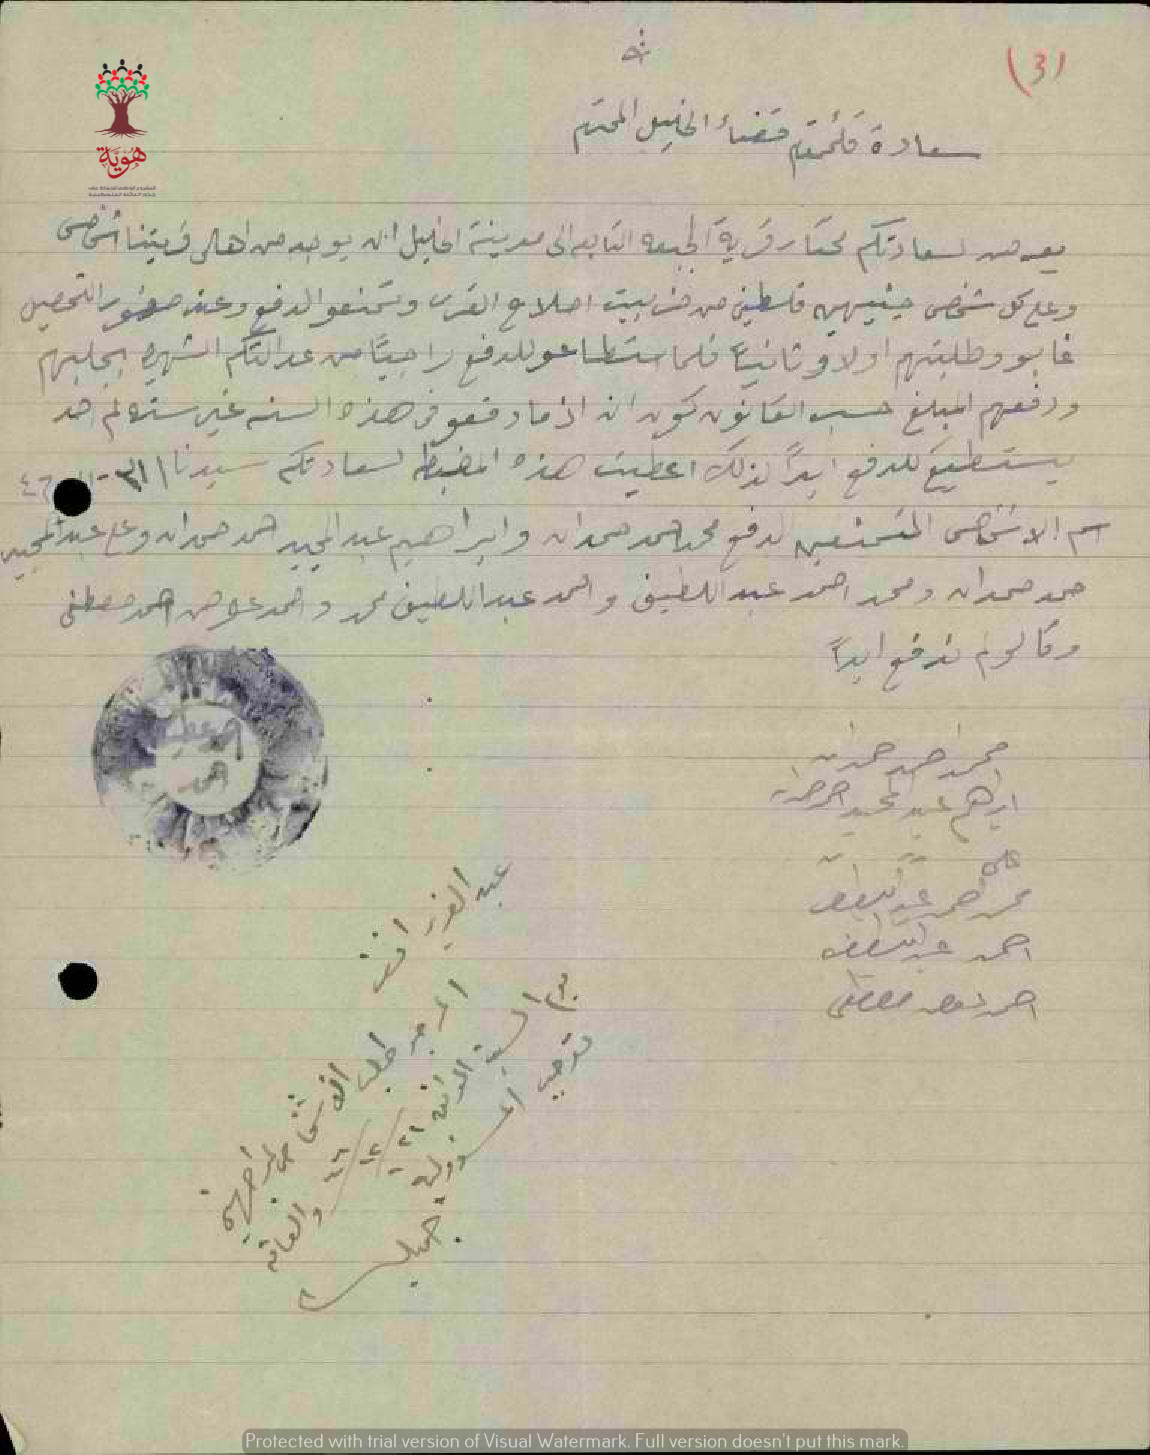 (3)
سعادة قائمقام قضاء الخليل المحترم
يعرض لسعادتكم مختار قرية الجبعه التابعه الى مدينة الخليل انه يوجد من اهالي قريتنا اشخاص
وعلى كل شخص جنيهين فلسطيني من ضريبت اصلاح القرى وتمنعو الدفع وعند حضور التحصيل
غابو وطلبتهم اولا وثانياً فلما استطاعو للدفع راجياً من عدالتكم الشهيره بجلبهم
ودفعهم المبلغ حسب القانون كون ان اذ ما دفعو في هذه السنه غير سنه لم احد
يستطيع للدفع ابداً لذلك اعطيت هذه المضبطه لسعادتكم سيدنا
اسم الاشخاص المتمنعين لدفع محمد احمد حمدان وابراهيم عبد المجيد حمد حمدان وعلي عبد المجيد
حمد حمدان ومحمد احمد عبد اللطيف واحمد عبد اللطيف محمد واحمد عوض احمد مصطفى
وقالو لم ندفع ابداً
احمد
محمد احمد حمدان
ابراهيم عبد المجيد حمدان
علي
محمد احمد عبد اللطيف
احمد عبد اللطيف
احمد عوض مصطفى
عبد العزيز افندي
ارجو طلب الاشخاص لمواجهتي
يوم السبت الموافق ٢١/١٢/٤٦ والفاقه
توجب المسؤولية
هوية
المشروع الوطني للحفاظ على
جذور العائلة الفلسطينية
Protected with trial version of Visual Watermark. Full version doesn't put this mark.